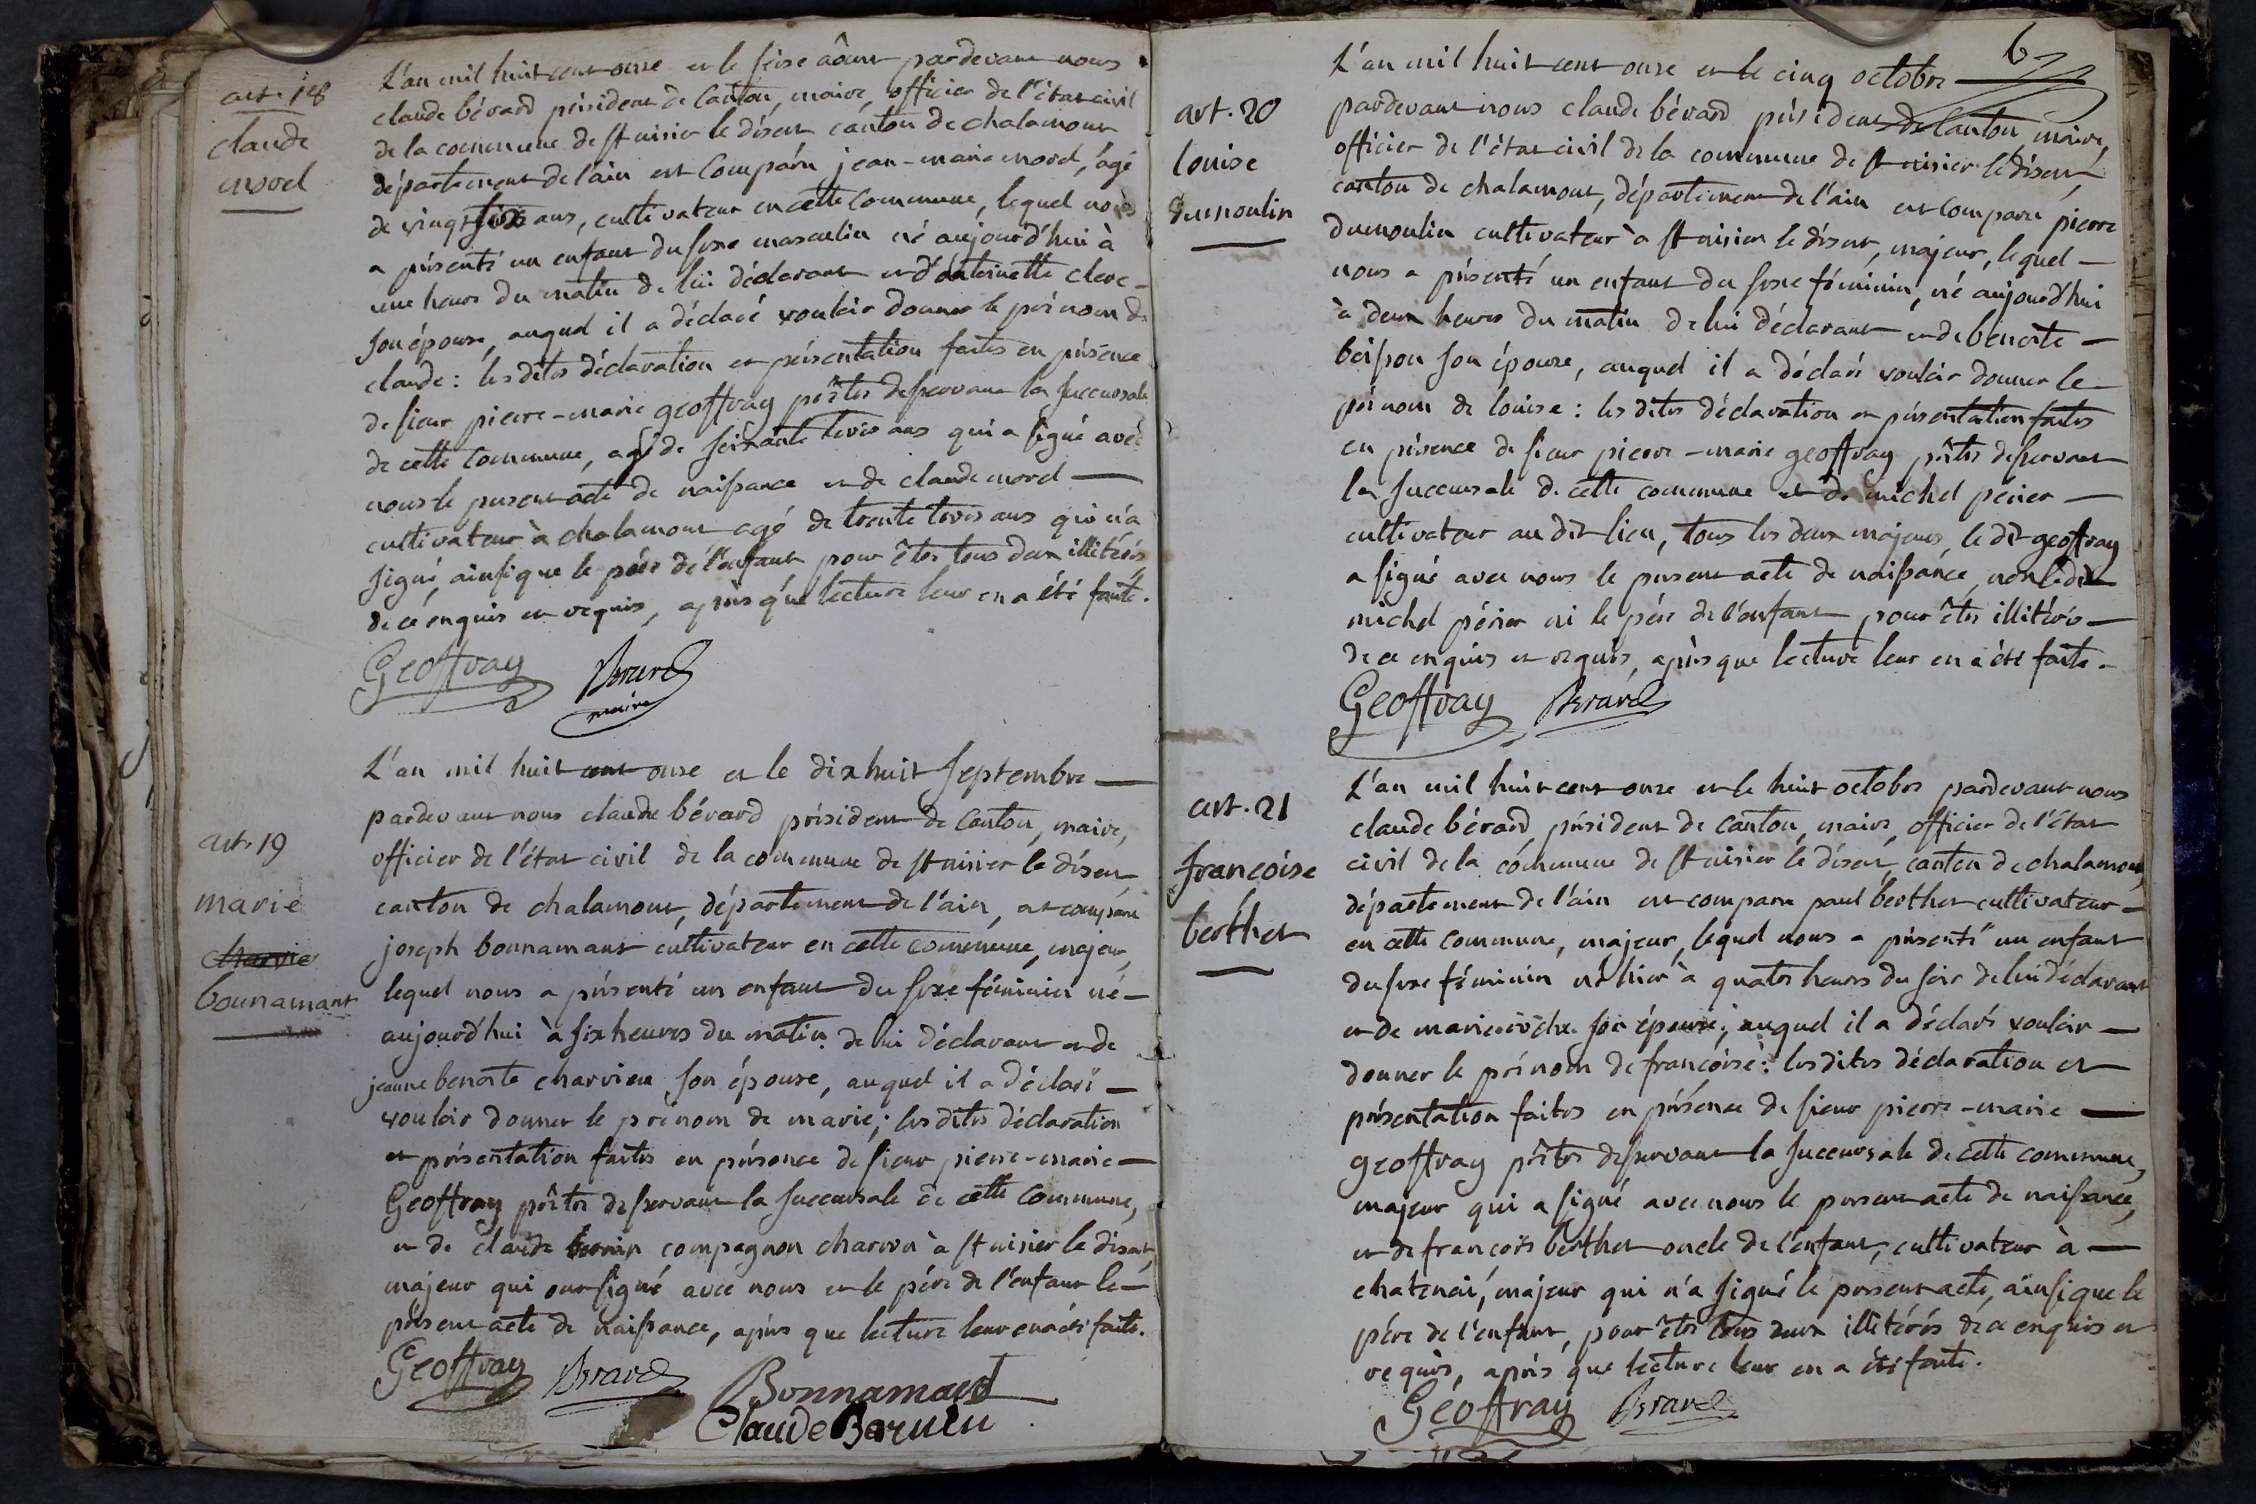 art. 18
claude
morel
L'an mil huit cent onze et le seize àoust pardevant nous
claude bérard président de Canton, maire, officier de l'état civil
de la commune de st nisier le désert canton de chalamont
département de l'ain est Comparu jean-marie morel, agé
de vingt six ans, cultivateur en cette Commune, lequel nous
a présenté un enfant du sexe masculin né aujourd'hui à
une heure du matin de lui déclarant et d'entoinette clerc -
son épouse, auquel il a déclaré vouloir donner le prénom de
claude: les dites déclaration et présentation faites en présence
de sieur pierre-marie geoffray prêtre desservant la succursale
de cette Commune, agé de soixante trois ans qui a signé avec
nous le present acte de naissance et de claude morel —
cultivateur à chalamont agé de trente trois ans qui n'a
signé, ainsi que le pére de l'enfant pour être tous deux illitérés
de ce enquis et requis, après que lecture leur en a été faite.
Geoffray Berard
maire
art. 19
marie
charvie
bonnamant
L'an mil huit cent onze et le dix huit septembre —
pardevant nous claude bérard président de Canton, maire,
officier de l'état civil de la commune de st nisier le désert
canton de chalamont, département de l'ain, est comparu
joseph bonnamant cultivateur en cette commune, majeur,
lequel nous a présenté un enfant du sexe féminin né —
aujourd'hui à six heures du matin de lui déclarant et de
jeanne benoite charvieu son épouse, auquel il a déclaré —
vouloir donner le prénom de marie; les dites déclaration
et présentation faites en présence de sieur pierre-marie —
Geoffray prêtre desservant la succursale de cette Commune,
et de claude compagnon charron à st nisier le disert,
majeur qui ont signé avec nous et le pére de l'enfant le —
présent acte de naissance, après que lecture leur en a été faite.
Geoffray Berard Bonnamant
Claude Bernin
6
art. 20
louise
dumoulin
L'an mil huit cent onze et le cinq octobre —
pardevant nous claude bérard président de Canton maire,
officier de l'état civil de la commune de st nisier le désert,
canton de chalamont, département de l'ain est comparu pierre
dumoulin cultivateur à st nisier le désert, majeur, lequel —
nous a présenté un enfant du sexe féminin, né aujourd'hui
à deux heures du matin de lui déclarant et de benoite —
boisson son épouse, auquel il a déclaré vouloir donner le —
prénom de louise: les dites déclaration et présentation faites
en présence de sieur pierre-marie geoffray prêtre desservant
la succursale de cette commune et de michel périer —
cultivateur au dit lieu, tous les deux majeurs, le dit geoffray
a signé avec nous le present acte de naissance, non ledit
michel périer ni le pére de l'enfant pour être illitérés —
de ce enquis et requis, après que lecture leur en a été faite.
Geoffray Berard
art. 21
francoise
berthet
L'an mil huit cent onze et le huit octobre pardevant nous
claude bérard, président de canton, maire, officier de l'état
civil de la commune de st nisier le désert, canton de chalamont,
département de l'ain est comparu paul berthet cultivateur —
en cette commune, majeur, lequel nous a présenté un enfant
du sexe féminin né hier à quatre heures du soir de lui déclarant
et de marie roche son épouse; auquel il a déclaré vouloir —
donner le prénom de francoise: les dites déclaration et
présentation faites en présence de sieur pierre-marie —
geoffray prêtre desservant la succursale de cette commune,
majeur qui a signé avec nous le present acte de naissance,
et de francois berthet oncle de l'enfant, cultivateur à —
chatenai, majeur qui n'a signé le present acte, ainsi que le
pére de l'enfant, pour être tous deux illitérés de ce enquis et
requis, après que lecture leur en a été faite.
Geoffray Berard